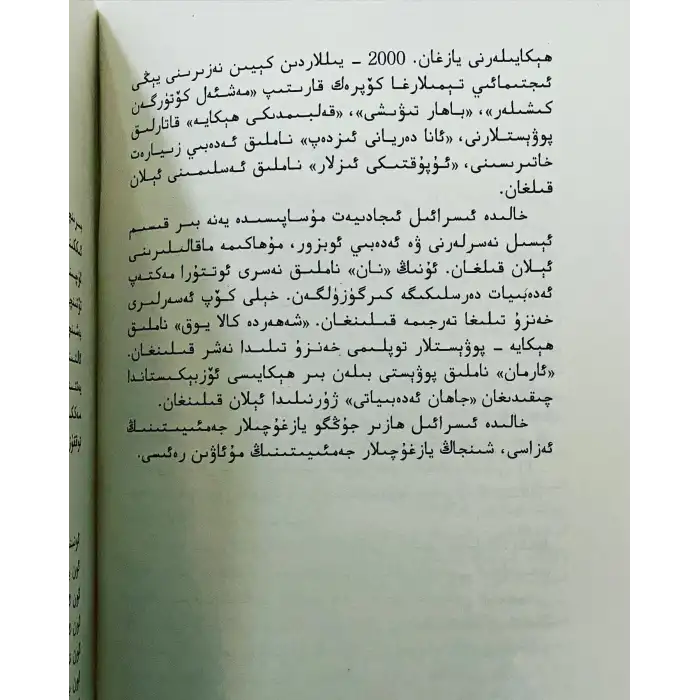 ھېكايىلەرنى يازغان. 2000 – يىللاردىن كېيىن نەزىرىنى يېڭى
ئىجتىمائىي تېمىلارغا كۆپرەك قارىتىپ «مەشئەل كۆتۈرگەن
كىشىلەر»، «باھار تىۋىشى»، «قەلىمدىكى ھېكايە» قاتارلىق
پوۋېستلارنى، «ئانا دەريانى ئىزدەپ» ناملىق ئەدەبىي زىيارەت
خاتىرىسىنى، «ئۇپۇقتىكى ئىزلار» ناملىق ئەسلىمىنى ئېلان
قىلغان.
خالىدە ئىسرائىل ئىجادىيەت مۇساپىسىدە يەنە بىر قىسىم
ئېسىل نەسرلەرنى ۋە ئەدەبىي ئوبزور، مۇھاكىمە ماقالىلىرىنى
ئېلان قىلغان. ئۇنىڭ «نان» ناملىق نەسرى ئوتتۇرا مەكتەپ
ئەدەبىيات دەرسلىكىگە كىرگۈزۈلگەن. خېلى كۆپ ئەسەرلىرى
خەنزۇ تىلىغا تەرجىمە قىلىنغان. «شەھەردە كالا يوق» ناملىق
ھېكايە – پوۋېستلار توپلىمى خەنزۇ تىلىدا نەشر قىلىنغان.
«ئارمان» ناملىق پوۋېستى بىلەن بىر ھېكايىسى ئۆزبېكىستاندا
چىقىدىغان «جاھان ئەدەبىياتى» ژۇرنىلىدا ئېلان قىلىنغان.
خالىدە ئىسرائىل ھازىر جۇڭگو يازغۇچىلار جەمئىيىتىنىڭ
ئەزاسى، شىنجاڭ يازغۇچىلار جەمئىيىتىنىڭ مۇئاۋىن رەئىسى.